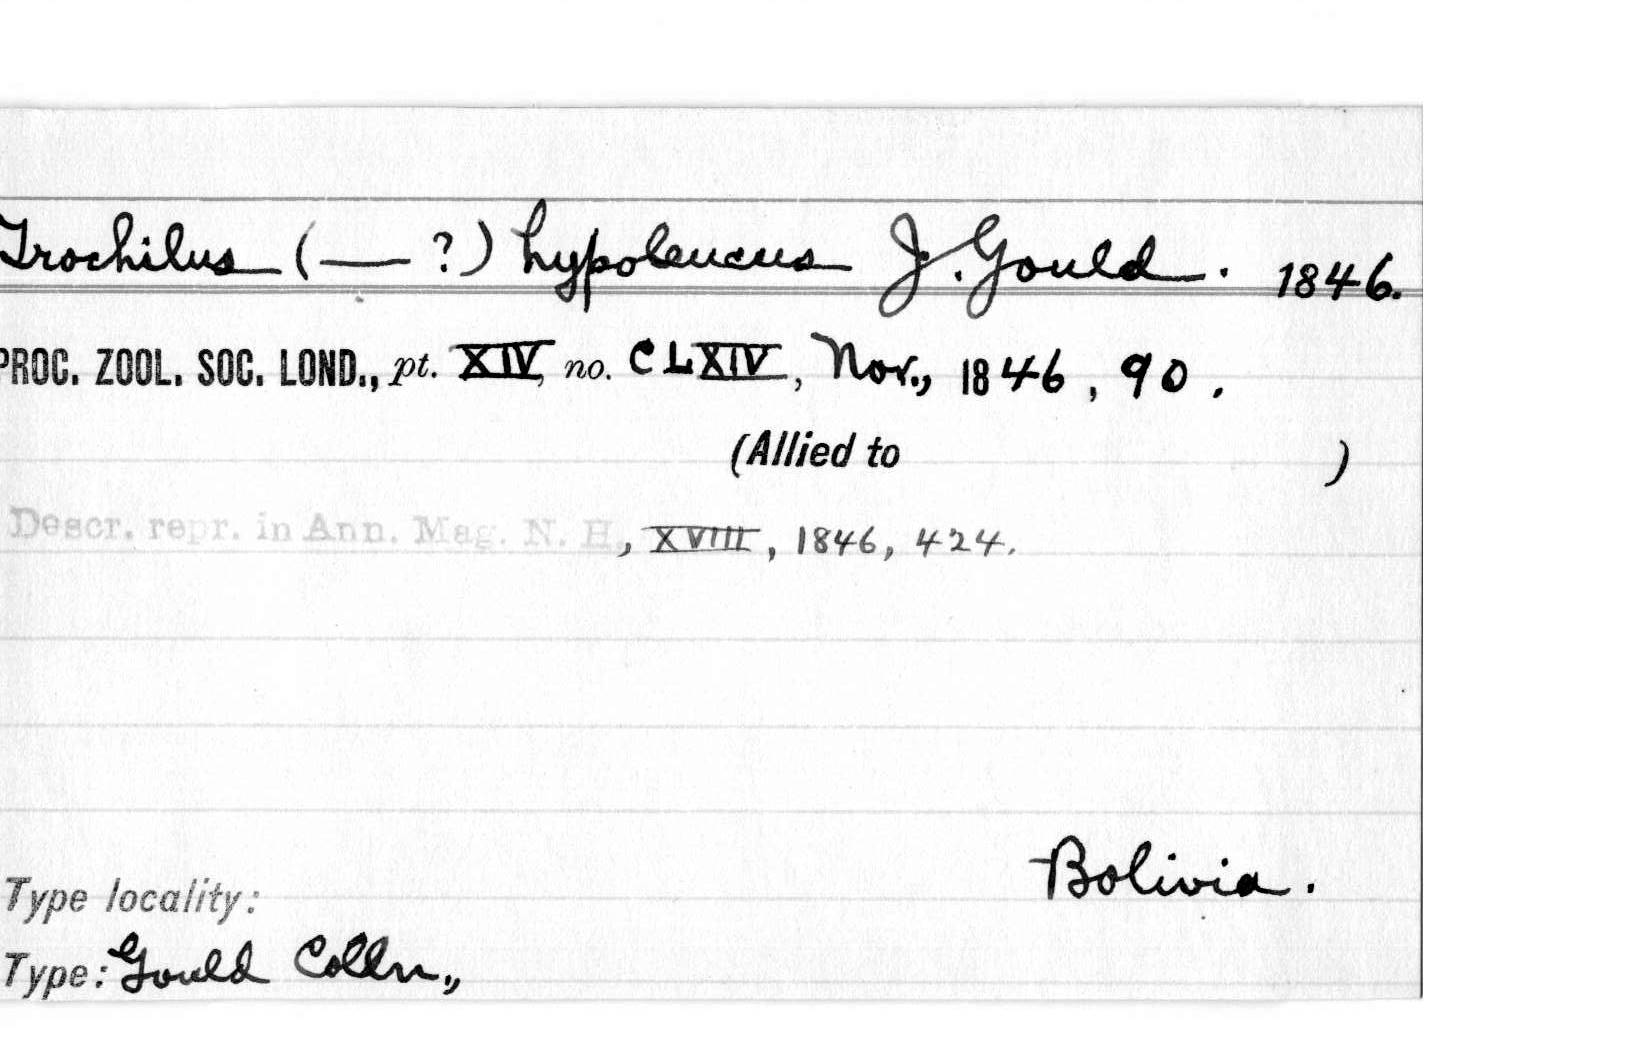 Trochilus (— ?) hypoleucus J. Gould. 1846.
PROC. ZOOL. SOC. LOND., pt. XIV, no. CLXIV, Nov., 1846, 90.
(Allied to )
Descr. repr. in Ann. Mag. N. H., XVIII, 1846, 424.
Bolivia.
Type locality:
Type: Gould Colln.,